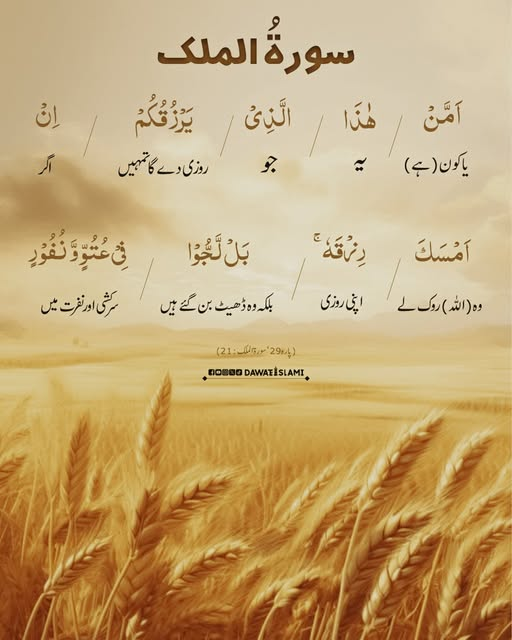 سورۃُ الملک
اَمَّنْ / هٰذَا / الَّذِیْ / یَرْزُقُكُمْ / اِنْ
یا کون (ہے) یہ جو روزی دے گا تمہیں اگر
اَمْسَكَ / رِزْقَهٗۚ / بَلْ لَّجُّوْا / فِیْ عُتُوٍّ وَّ نُفُوْرٍ
وہ (اللہ) روک لے اپنی روزی بلکہ وہ ڈھیٹ بن گئے ہیں سرکشی اور نفرت میں
(پارہ 29، سورۃ الملک: 21)
DAWATEISLAMI